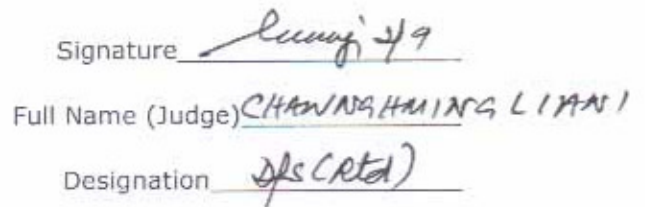 Signature 2/9
Full Name (Judge) CHAWNGHMINGLIANI
Designation (Rtd)